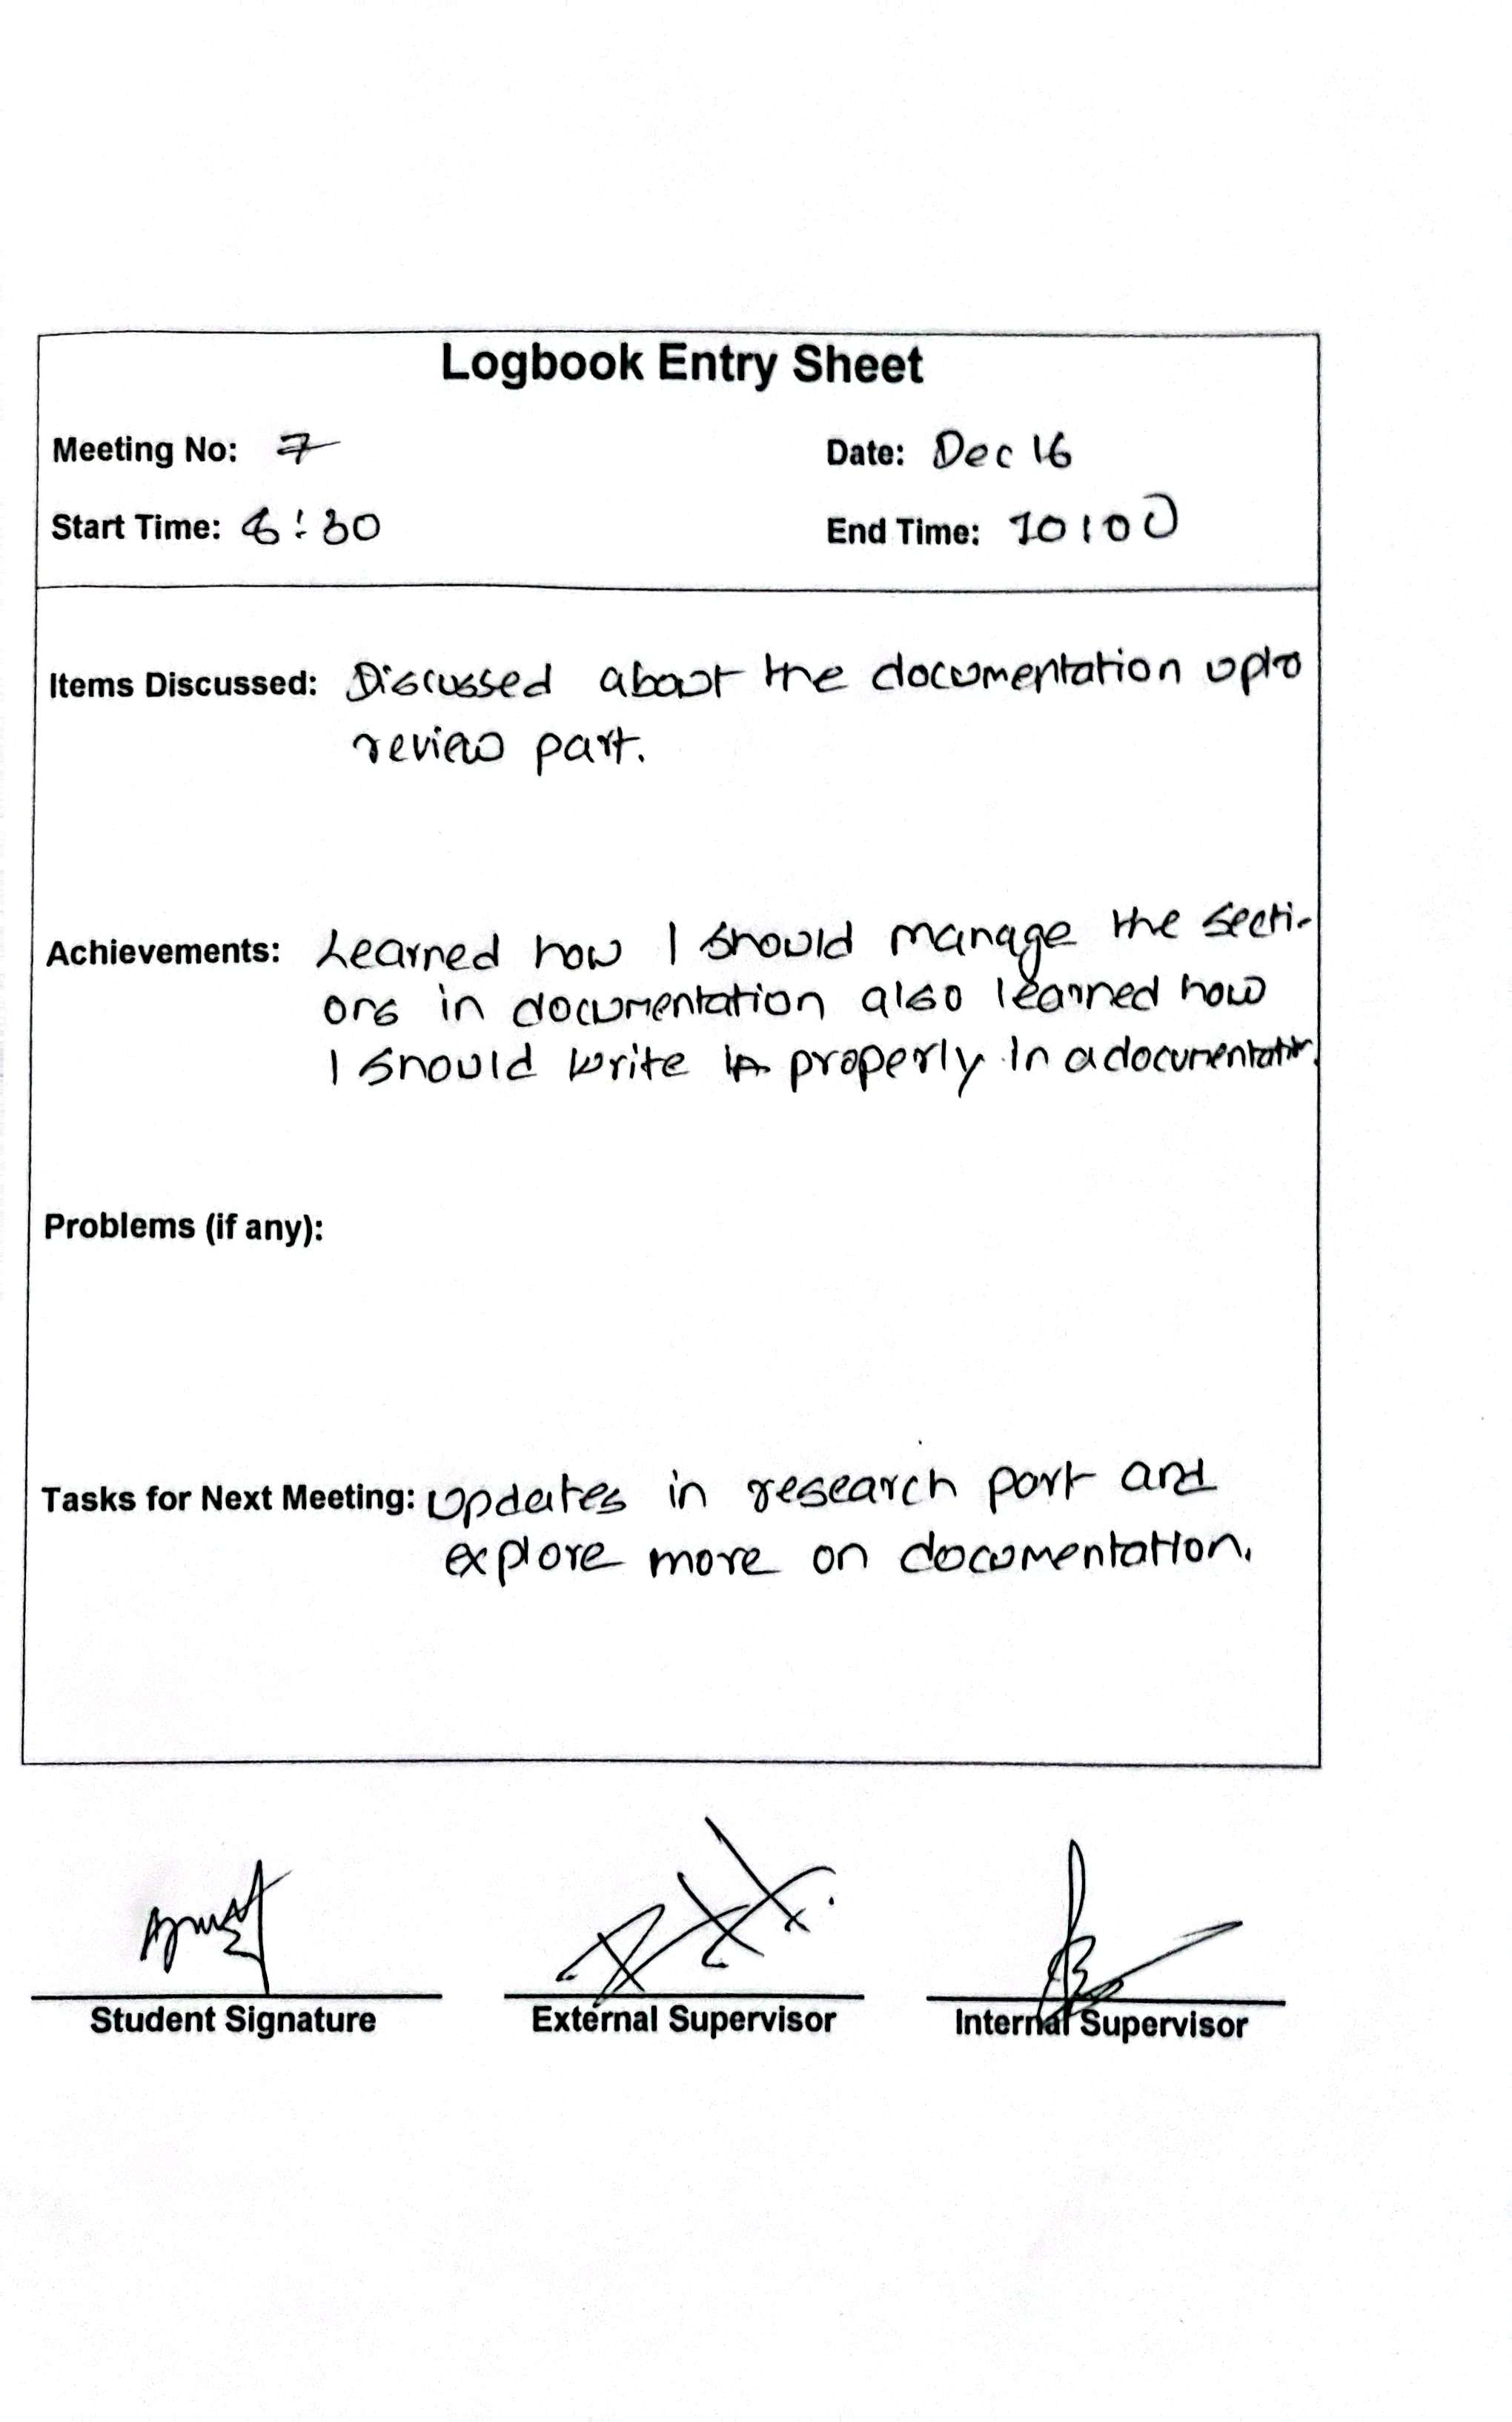 Logbook Entry Sheet
Meeting No: 7 Date: Dec 16
Start Time: :30 End Time: 10:00
Items Discussed: Discussed about the documentation upto
review part.
Achievements: Learned how I should manage the secti-
ons in documentation also learned how
I should write properly in a documentation.
Problems (if any):
Tasks for Next Meeting: Updates in research part and
explore more on documentation.
Student Signature External Supervisor Internal Supervisor